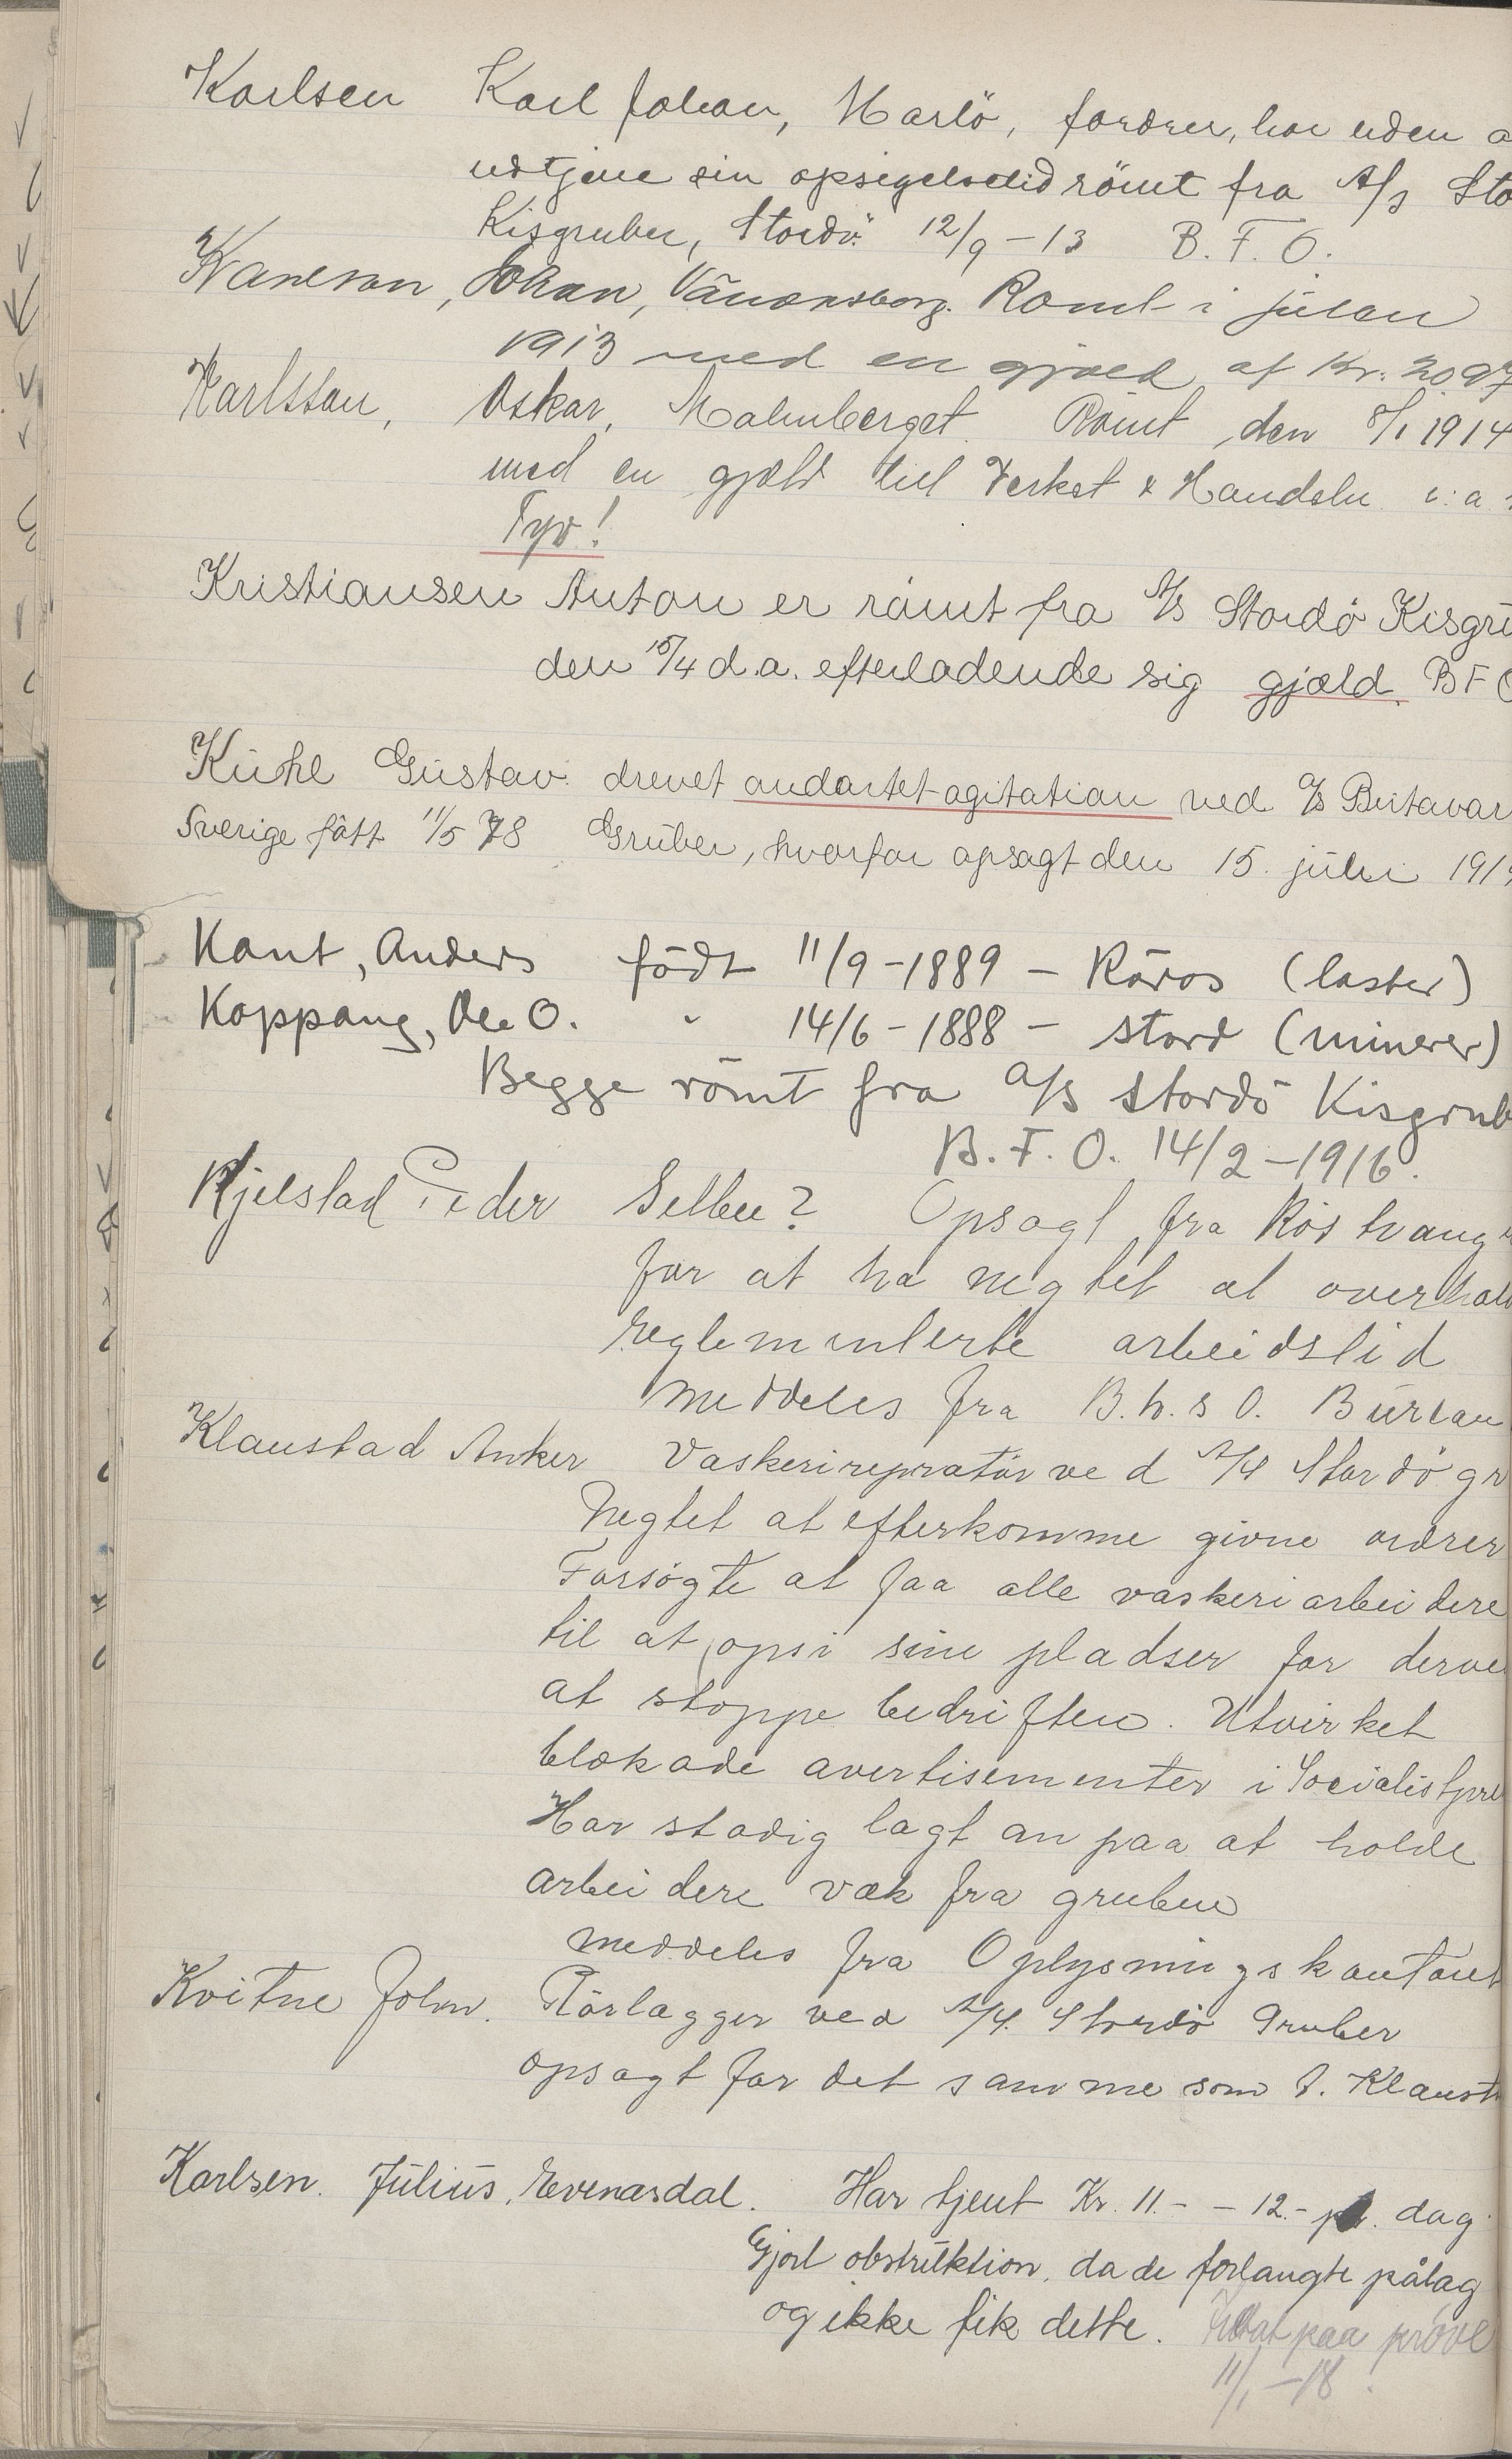 Karlsen Karl Johan, Harlö, fordrer, har uden a
udtjene sin opsigelsetid römt fra A/s Sto
Kisgruber, Stordö. 12/9 - 13 B. F. O.
Johan, Vänersborg. Römt i julen
1913 med en gjæld af Kr. 20.97
Karlsson, Oskar, Malmberget. Römt den 8/1 1914
med en gjæld till Verket & Handeln
Tyv!
Kristiansen Anton er römt fra A/s Stordö Kisgru
den 15/4 d.a. efterladende sig gjæld. BFO
Kühl Gustav drevet ondartet agitation ved A/s Birtavar
Sverige født 11/5 78 Gruber, hvorfor opsagt den 15. juli 191
Kant, Anders födt 11/9 - 1889 - Röros (laster)
Koppang, Ole O. " 14/6 - 1888 - Stord (minerer)
Begge römt fra A/s Stordö Kisgrub
B. F. O. 14/2 - 1916.
Kjelstad Peder Selbu? Opsagt fra Röstvang
for at ha negtet at overhol
reglementerte arbeidstid
meddeles fra B. h. s O. Bureau
Klaustad Anker Vaskerirepratör ved A/S Stordö gr
Negtet at efterkomme givne ordrer
Forsögte at faa alle vaskeriarbeidere
til at opsi sine pladser for derve
at stoppe bedriften. Utvirket
blokade avertisementer i Socialistpre
Har stadig lagt an paa at holde
arbeidere væk fra gruben
meddeles fra Oplysningskontoret
Kvitne John. Rörlægger ved A/S. Stordö Gruber
opsagt for det samme som A. Klaust
Karlsen. Julius, Evenesdal. Har tjent Kr. 11.- - 12.- pr. dag
Gjort obstruktion, da de forlangte pålag
og ikke fik dette. paa pröve
11/1 - 18.